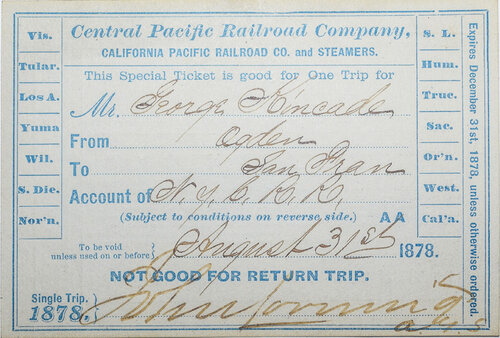 Central Pacific Railroad Company,
CALIFORNIA PACIFIC RAILROAD CO. and STEAMERS.
This Special Ticket is good for One Trip for
Mr. George Kincade
From Ogden
To San Fran
Account of N.Y.C.R.R.
(Subject to conditions on reverse side.) AA
To be void unless used on or before August 31st 1878.
NOT GOOD FOR RETURN TRIP.
Single Trip.
1878.
Vis.
Tular.
Los A.
Yuma
Wil.
S. Die.
Nor'n.
S. L.
Hum.
Truc.
Sac.
Or'n.
West.
Cal'a.
Expires December 31st, 1878, unless otherwise ordered.